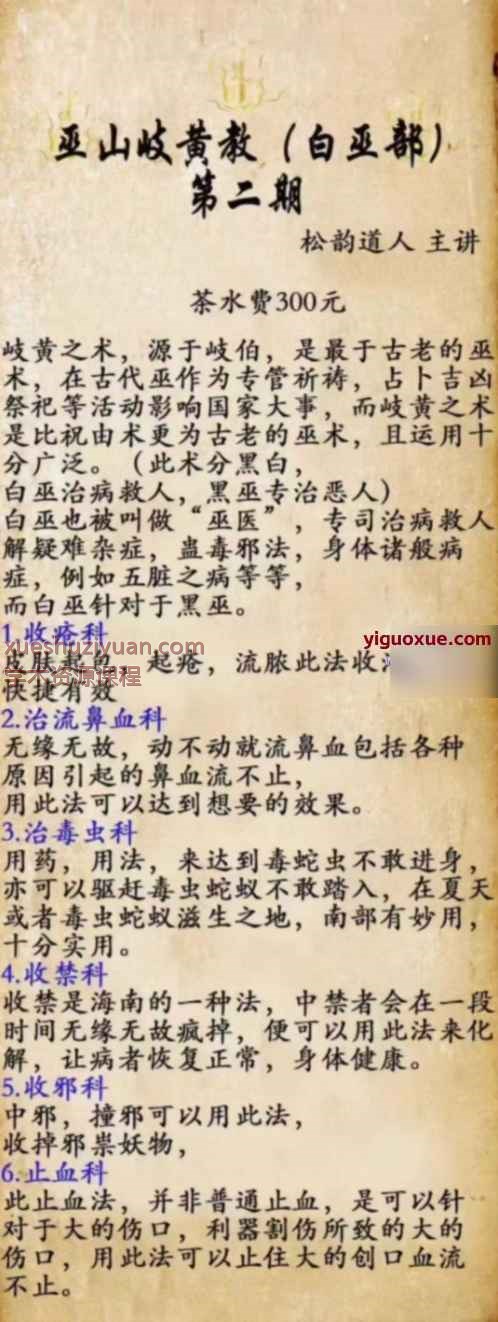 巫山岐黄教（白巫部）
第二期
松韵道人 主讲
茶水费300元
岐黄之术，源于岐伯，是最于古老的巫
术，在古代巫作为专管祈祷，占卜吉凶
祭祀等活动影响国家大事，而岐黄之术
是比祝由术更为古老的巫术，且运用十
分广泛。（此术分黑白，
白巫治病救人，黑巫专治恶人）
白巫也被叫做“巫医”，专司治病救人
解疑难杂症，蛊毒邪法，身体诸般病
症，例如五脏之病等等，
而白巫针对于黑巫。
1.收疮科
xueshuziyuan.com
yiguoxue.com
皮肤起包，起疮，流脓此法收
学术资源课程
快捷有效
2.治流鼻血科
无缘无故，动不动就流鼻血包括各种
原因引起的鼻血流不止，
用此法可以达到想要的效果。
3.治毒虫科
用药，用法，来达到毒蛇虫不敢进身，
亦可以驱赶毒虫蛇蚁不敢踏入，在夏天
或者毒虫蛇蚁滋生之地，南部有妙用，
十分实用。
4.收禁科
收禁是海南的一种法，中禁者会在一段
时间无缘无故疯掉，便可以用此法来化
解，让病者恢复正常，身体健康。
5.收邪科
中邪，撞邪可以用此法，
收掉邪祟妖物，
6.止血科
此止血法，并非普通止血，是可以针
对于大的伤口，利器割伤所致的大的
伤口，用此法可以止住大的创口血流
不止。